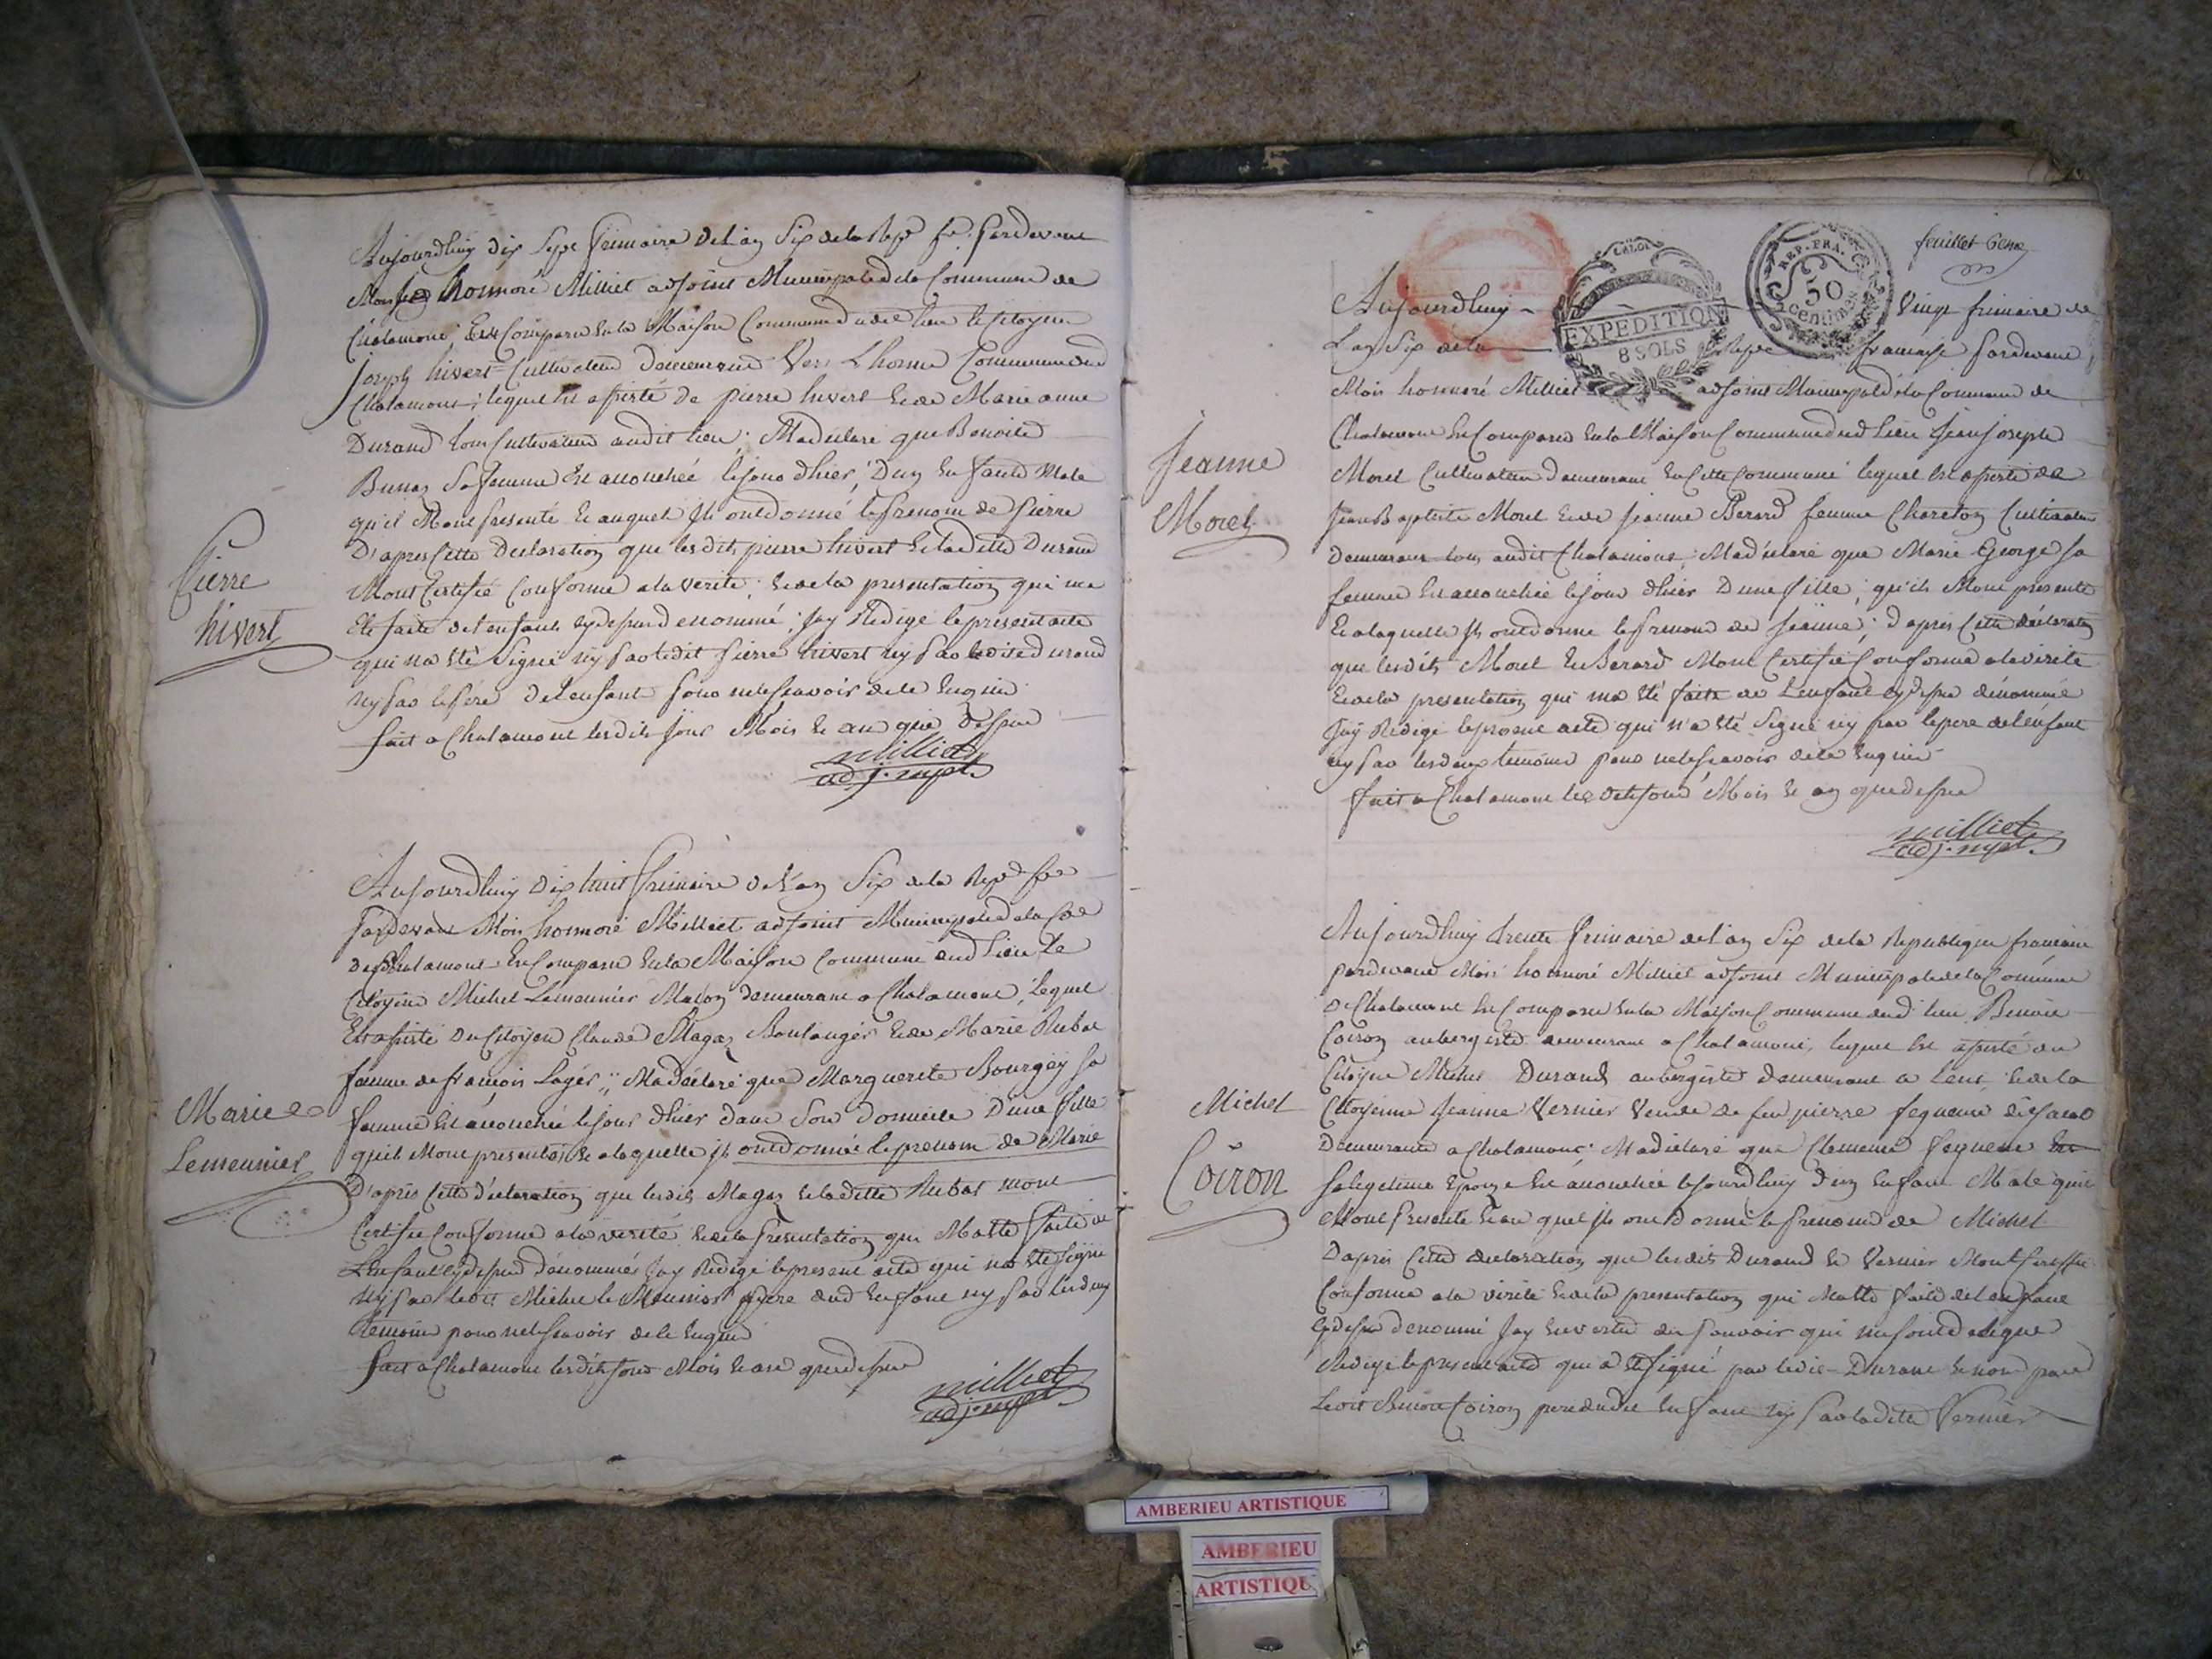 Aujourdhuy dix Sept frimaire de L'an Six de la Rep^e fr^e pardevant
Moy honnoré Milliet adjoint Municipal de la Commune de
Chalamont, Est Comparu en la Maison Commune dudit lieu le Citoyen
Joseph hivert Cultivateur demeurant Vers Lhorme Commune dud
Chalamont; lequel est assisté de pierre hivert et de Marie anne
Durand tous Cultivateurs audit lieu; Ma déclaré que Benoite
sa femme Est accouchée le jour dhier, Dun Enfant Male
quil Mont presenté et auquel ils ont donné le prenom de pierre
D'apres Cette Declaration que lesdits pierre hivert et laditte Durand
Mont Certifié Conforme a la verité; et de la presentation qui ma
été faite de l'enfant cy dessus denommé; Jay Redigé le present acte
qui n'a été Signé ny par ledit pierre hivert ny par ladite Durand
ny par le pére de L'enfant pour ne le scavoir de ce Enquis
fait a Chalamont lesdits jour Mois et an que dessus
Milliet
adj. mpl.
Pierre
hivert
Aujourdhuy dix huit frimaire de L'an Six de la Rep^e fr^e
pardevant Moy honnoré Milliet adjoint Municipal de la C^ne
de Chalamont Est Comparu en la Maison Commune dud Lieu Le
Citoyen Michel Lemeunier Maçon demeurant a Chalamont, lequel
Est assisté du Citoyen Claude Magaz Boulanger et de Marie Rubat
femme de françois Lager; Ma déclaré que Marguerite Bourgey sa
femme est accouchée le jour dhier dans Son Domicile D'une fille
quils Mont presentés et a laquelle ils ont donné le prenom de Marie
D'aprés Cette déclaration que lesdits Magaz et laditte Rubat mont
Certifié Conforme a la verité et de la presentation qui Ma été faite de
L'enfant cy dessus dénommés Jay Redigé le present acte qui n'a été Signé
ny par ledit Michel le Meunier pere dud Enfant ny par les deux
temoins pour ne le scavoir de ce Enquis
fait a Chalamont lesdits jour Mois et an que dessus
Milliet
adj. mpl.
Marie
Lemeunier
feuillet 6eme
REP. FRA.
50
centimes
EXPEDITION
8 SOLS
Aujourdhuy Vingt frimaire de
L'an Six de la Rep^e française pardevant
Moi honnoré Milliet adjoint Municipal de la Commune de
Chalamont est Comparu en la Maison Commune dud Lieu Jean joseph
Morel Cultivateur demeurant en Cette Commune lequel est assisté de
Jean Baptiste Morel et de Jeanne Berard femme Chareton Cultivateurs
Demeurant tous audit Chalamont; Ma déclaré que Marie George sa
femme est accouchée le jour dhier D'une fille; qu'ils Mont presenté
et a laquelle ils ont donné le prenom de Jeanne; d'aprés Cette déclaration
que lesdits Morel et Berard Mont Certifié Conforme a la verité
et de la presentation qui ma été faite de L'enfant cy dessus dénommé
Jay Redigé le present acte qui n'a été Signé ny par le pere de L'enfant
ny par les deux temoins pour ne le scavoir de ce Enquis
fait a Chalamont lesdits jour Mois et an que dessus
Milliet
adj. mpl.
Jeanne
Morel
Aujourdhuy trente frimaire de l'an Six de la Republique française
pardevant Moi honnoré Milliet adjoint Municipal de la Commune
de Chalamont Est Comparu en la Maison Commune dud lieu Benoit
Coiron aubergiste demeurant a Chalamont, lequel Est assisté du
Citoyen Michel Durand aubergiste demeurant a et de la
Citoyenne Jeanne Vernier Veuve de feu pierre
Demeurante a Chalamont; Ma déclaré que Clemence
sa legitime Epouse Est accouchée le jourdhuy d'un Enfant Male quil
Mont presenté et au quel ils ont donné le prenom de Michel
Daprés Cette déclaration que lesdits Durand et Vernier Mont Certifié
Conforme a la verité et de la presentation qui Ma été faite de L'enfant
cy dessus denommé Jay en vertu des pouvoir qui me sont delegué
Redigé le present acte qui a été Signé par ledit Durand et non par
Ledit Benoit Coiron pere dudit Enfant ny par ladite Vernier
Michel
Coiron
AMBERIEU ARTISTIQUE
AMBERIEU
ARTISTIQU